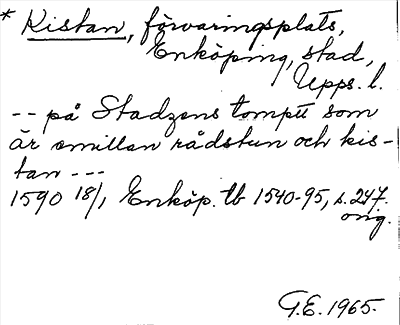 * Kistan, förvaringsplats,
Enköping, stad,
Upps. l.
-- på Stadzens tompt som
är emillan rådstun och kis-
tan ---
1590 18/1, Enköp. tb 1540-95, s. 247.
orig.
G.E. 1965.